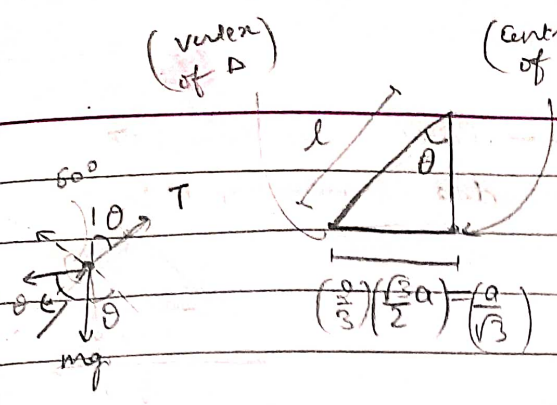 (vertex of Δ)
(cent
of
l
θ
60°
θ
T
θ
mg
(2/3)(√3/2 a) = (a/√3)